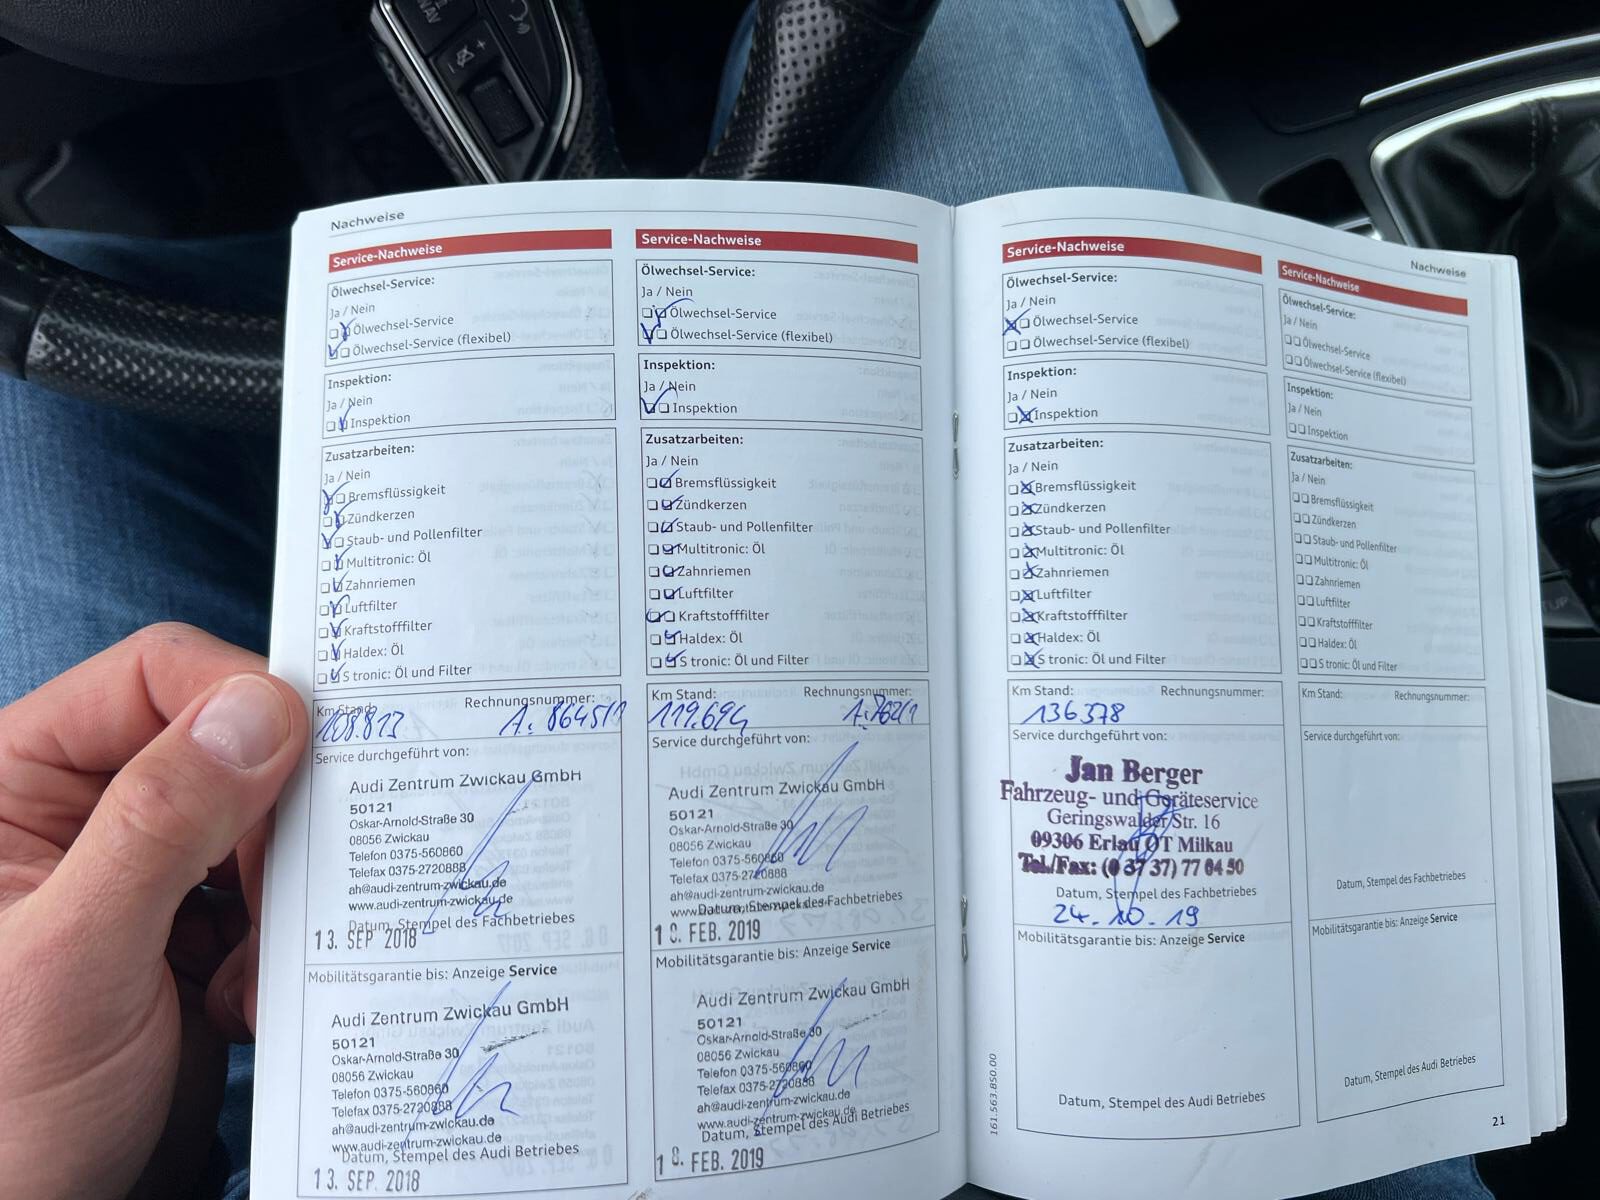 NAV
Nachweise
Service-Nachweise
Ölwechsel-Service:
Ja / Nein
Ölwechsel-Service
Ölwechsel-Service (flexibel)
Inspektion:
Ja / Nein
Inspektion
Zusatzarbeiten:
Ja / Nein
Bremsflüssigkeit
Zündkerzen
Staub- und Pollenfilter
Multitronic: Öl
Zahnriemen
Luftfilter
Kraftstofffilter
Haldex: Öl
S tronic: Öl und Filter
Km Stand: Rechnungsnummer:
108.813
Service durchgeführt von:
Audi Zentrum Zwickau GmbH
50121
Oskar-Arnold-Straße 30
08056 Zwickau
Telefon 0375-560860
Telefax 0375-2720888
ah@audi-zentrum-zwickau.de
www.audi-zentrum-zwickau.de
Datum, Stempel des Fachbetriebes
13. SEP. 2018
Mobilitätsgarantie bis: Anzeige Service
Audi Zentrum Zwickau GmbH
50121
Oskar-Arnold-Straße 30
08056 Zwickau
Telefon 0375-560860
Telefax 0375-2720888
ah@audi-zentrum-zwickau.de
www.audi-zentrum-zwickau.de
Datum, Stempel des Audi Betriebes
13. SEP. 2018
Service-Nachweise
Ölwechsel-Service:
Ja / Nein
Ölwechsel-Service
Ölwechsel-Service (flexibel)
Inspektion:
Ja / Nein
Inspektion
Zusatzarbeiten:
Ja / Nein
Bremsflüssigkeit
Zündkerzen
Staub- und Pollenfilter
Multitronic: Öl
Zahnriemen
Luftfilter
Kraftstofffilter
Haldex: Öl
S tronic: Öl und Filter
Km Stand: Rechnungsnummer:
119.694
Service durchgeführt von:
Audi Zentrum Zwickau GmbH
50121
Oskar-Arnold-Straße 30
08056 Zwickau
Telefon 0375-560860
Telefax 0375-2720888
ah@audi-zentrum-zwickau.de
Datum, Stempel des Fachbetriebes
FEB. 2019
Mobilitätsgarantie bis: Anzeige Service
Audi Zentrum Zwickau GmbH
50121
Oskar-Arnold-Straße 30
08056 Zwickau
Telefon 0375-560860
Telefax 0375-2720888
ah@audi-zentrum-zwickau.de
www.audi-zentrum-zwickau.de
Datum, Stempel des Audi Betriebes
FEB. 2019
Service-Nachweise
Ölwechsel-Service:
Ja / Nein
Ölwechsel-Service
Ölwechsel-Service (flexibel)
Inspektion:
Ja / Nein
Inspektion
Zusatzarbeiten:
Ja / Nein
Bremsflüssigkeit
Zündkerzen
Staub- und Pollenfilter
Multitronic: Öl
Zahnriemen
Luftfilter
Kraftstofffilter
Haldex: Öl
S tronic: Öl und Filter
Km Stand: Rechnungsnummer:
136378
Service durchgeführt von:
Jan Berger
Fahrzeug- und Geräteservice
Geringswalder Str. 16
09306 Erlau OT Milkau
Tel./Fax: (0 37 37) 77 04 50
Datum, Stempel des Fachbetriebes
24.10.19
Mobilitätsgarantie bis: Anzeige Service
Datum, Stempel des Audi Betriebes
161.563.850.00
Nachweise
Service-Nachweise
Ölwechsel-Service:
Ja / Nein
Ölwechsel-Service
Ölwechsel-Service (flexibel)
Inspektion:
Ja / Nein
Inspektion
Zusatzarbeiten:
Ja / Nein
Bremsflüssigkeit
Zündkerzen
Staub- und Pollenfilter
Multitronic: Öl
Zahnriemen
Luftfilter
Kraftstofffilter
Haldex: Öl
S tronic: Öl und Filter
Km Stand: Rechnungsnummer:
Service durchgeführt von:
Datum, Stempel des Fachbetriebes
Mobilitätsgarantie bis: Anzeige Service
Datum, Stempel des Audi Betriebes
21